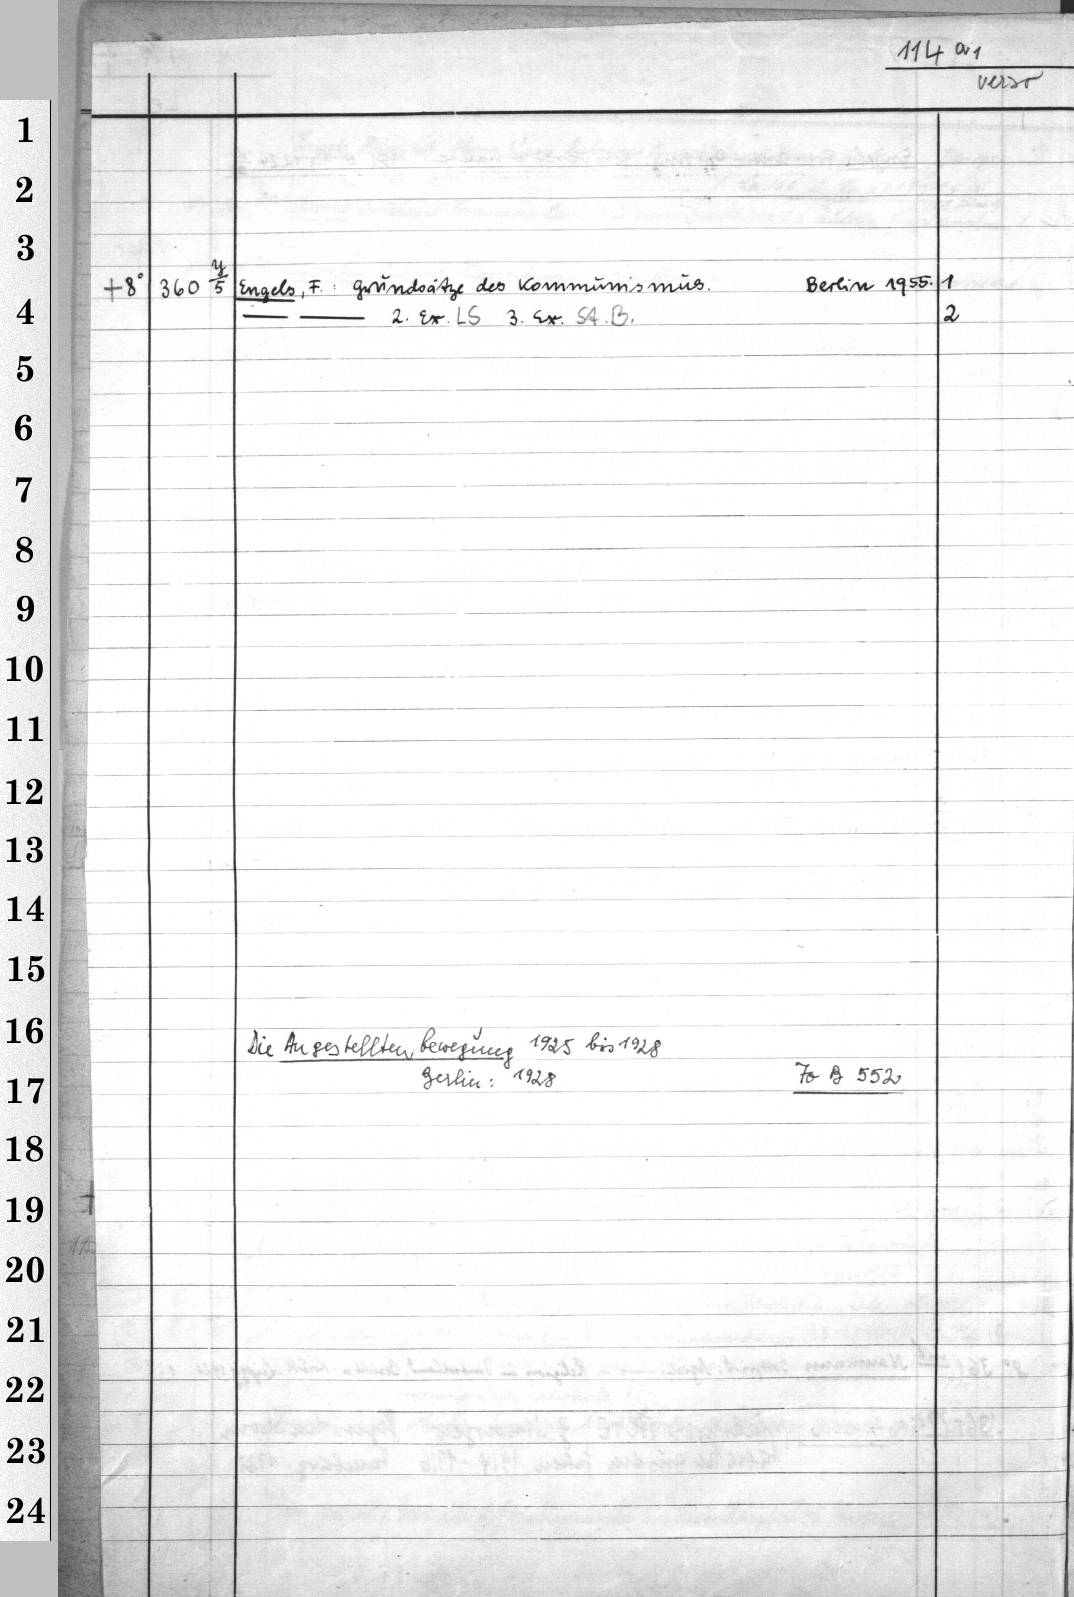 114 a1
verso
1
2
3
+8° 360 y/5 Engels, F.: Grundsätze des Kommunismus. Berlin 1955. 1
4
—— —— 2. Ex. LS 3. Ex. St.B. 2
5
6
7
8
9
10
11
12
13
14
15
16
Die Angestelltenbewegung 1925 bis 1928
Berlin: 1928 Fo B 552
17
18
19
20
21
22
23
24